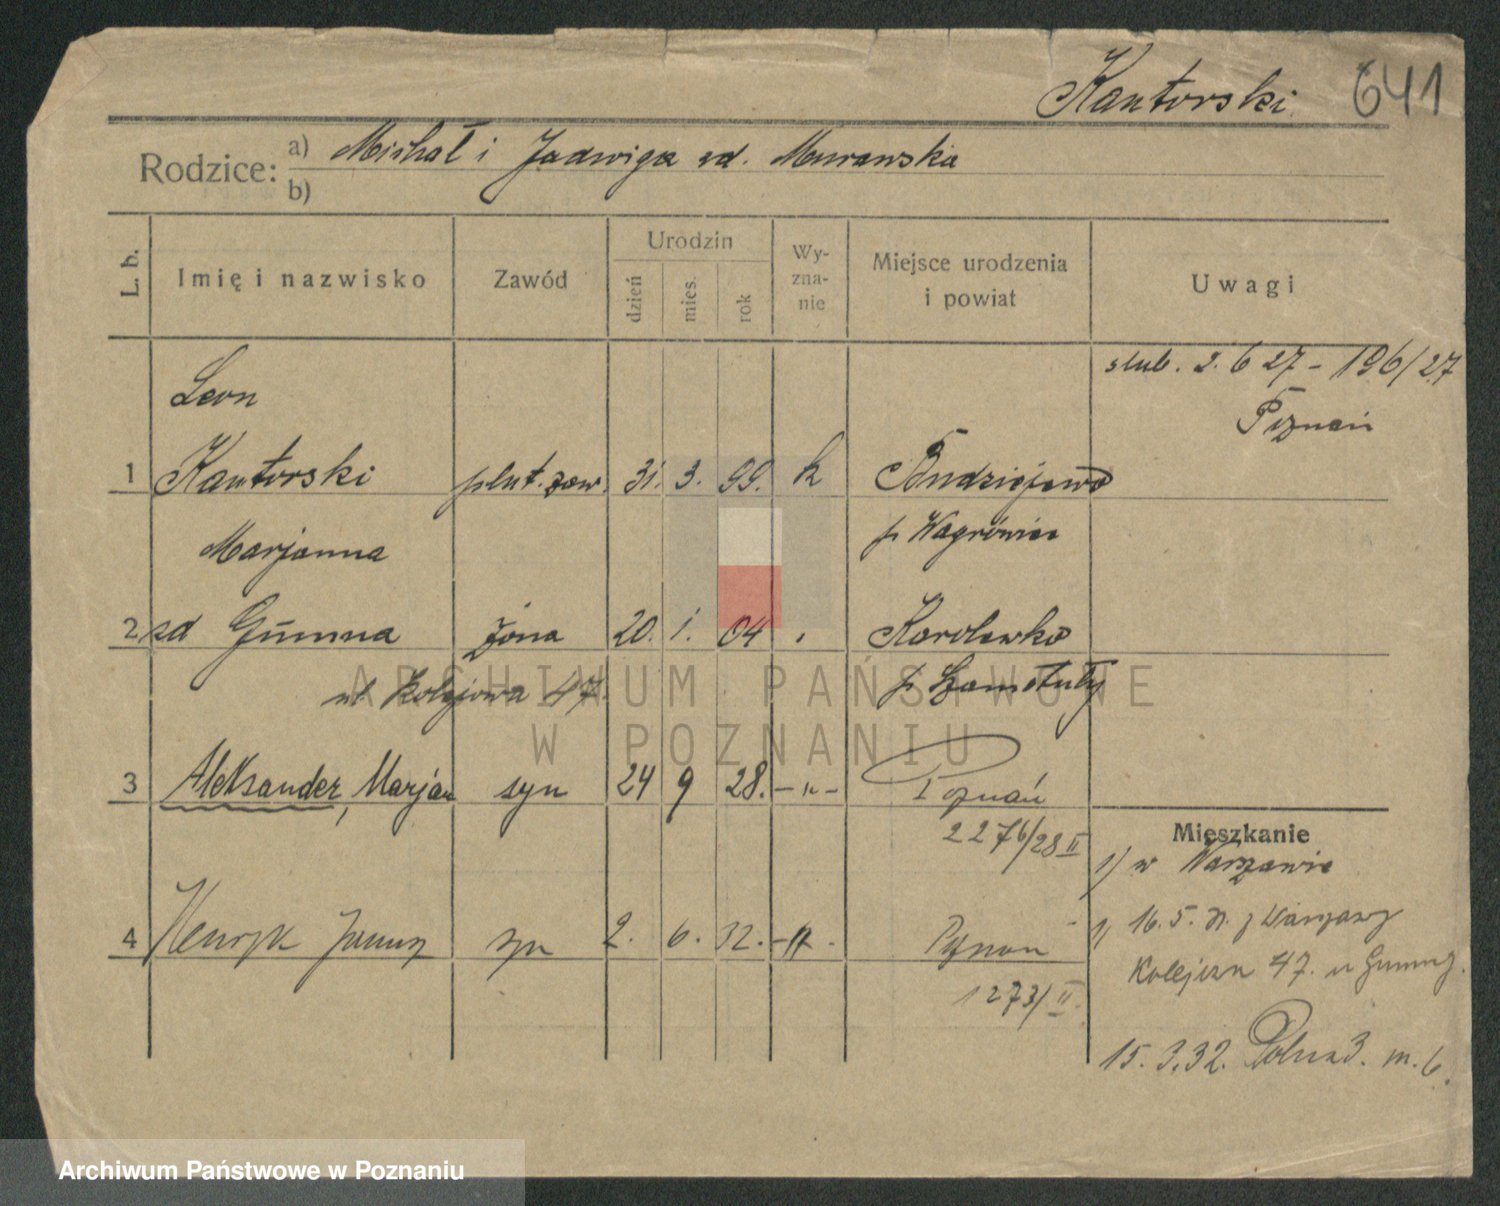 Kantorski 641
Rodzice: a) Michał i Jadwiga zd. Murawska
b)
L. b. Imię i nazwisko Zawód Urodzin dzień mies. rok Wy-zna-nie Miejsce urodzenia i powiat Uwagi
slub. 2. 6 27 - 196/27
Poznań
Leon
1 Kantorski plut. zaw. 31. 3. 99. k Budziejewo
p Wągrówiec
Marjanna
2 zd Gumna żona 20. 1. 04 Karolewko
ul. Kolejowa 47. p Szamotuły
3 Aleksander, Marjan syn 24 9 28. -"- Poznań
2276/28 II
Mieszkanie
1/ w Warszawie
4 Henryk Janusz syn 2. 6. 32. -"- Poznan
1273/II
16. 5. z Warszawy
47. u
15. 3. 32. Polna 3. m. 6.
ARCHIWUM PAŃSTWOWE
W POZNANIU
Archiwum Państwowe w Poznaniu